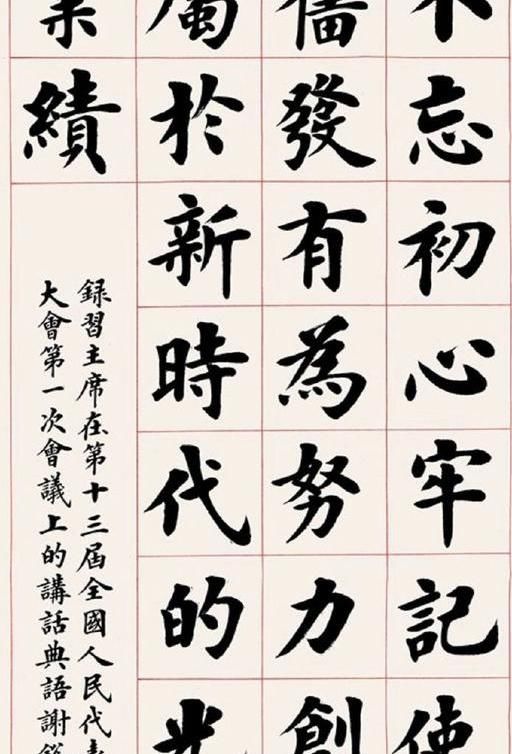 不忘初心牢記使
發有為努力創
屬於新時代的光
業績
録習主席在第十三屆全國人民代表
大會第一次會議上的講話典語謝